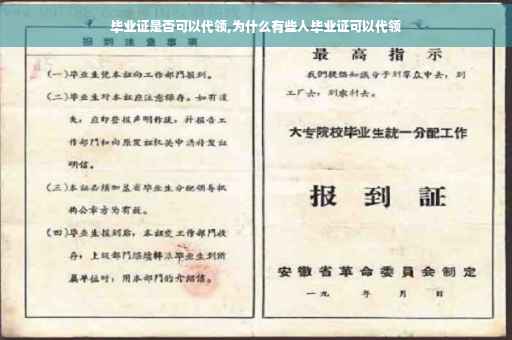 毕业证是否可以代领,为什么有些人毕业证可以代领
报到注意事项
(一)毕业生凭本证向工作部门报到。
(二)毕业生对本证应注意保存。如有遗
失,应即登报声明作废,并报告工
作部门和向原发证机关申请补发证
明信。
(三)本证必须加盖省毕业生分配领导机
构公章方为有效。
(四)毕业生报到后,本证交工作部门收
存;上级部门继续转派毕业生到所
属单位时,用本部门的介绍信。
最高指示
我们提倡知识分子到群众中去,到
工厂去,到农村去。
大专院校毕业生統一分配工作
报到証
安徽省革命委員会制定
一九 年 月 日